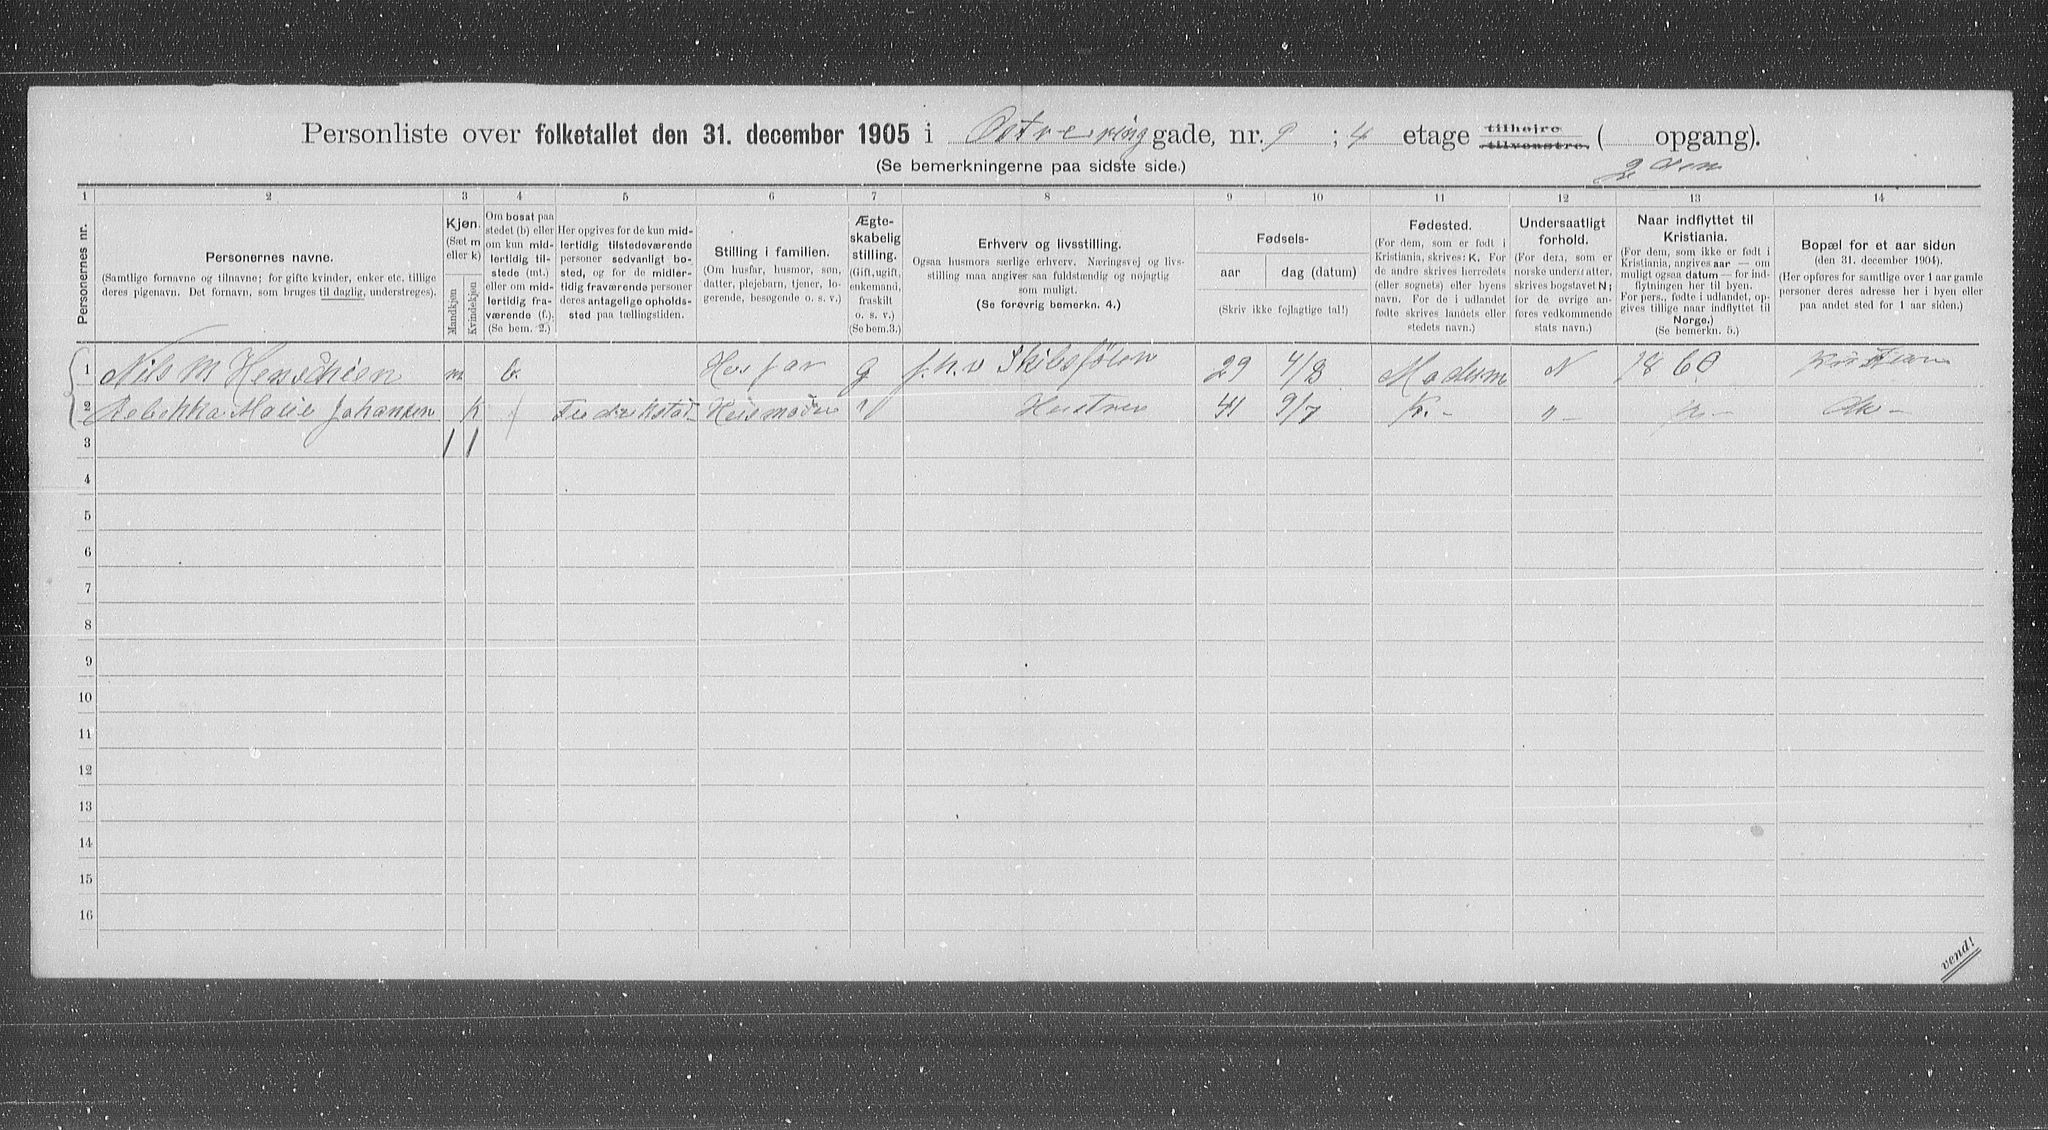 Personliste over folketallet den 31. december 1905 i Østre ring gade, nr. 9 ; 4 etage tilhøjre tilvenstre ( opgang).
(Se bemerkningerne paa sidste side.)
1 2 3 4 5 6 7 8 9 10 11 12 13 14
Personernes nr.
Personernes navne.
(Samtlige fornavne og tilnavne; for gifte kvinder, enker etc. tillige deres pigenavn. Det fornavn, som bruges til daglig, understreges).
Kjøn.
(Sæt m eller k)
Mandkjøn
Kvindekjøn
Om bosat paa stedet (b) eller om kun midlertidig tilstede (mt.) eller om midlertidig fraværende (f.).
(Se bem. 2.)
Her opgives for de kun midlertidig tilstedeværende personer sedvanligt bosted, og for de midlertidig fraværende personer deres antagelige opholdssted paa tællingstiden.
Stilling i familien.
(Om husfar, husmor, søn, datter, plejebarn, tjener, logerende, besøgende o. s. v.)
Ægteskabelig stilling.
(Gift, ugift, enkemand, fraskilt o. s. v.)
(Se bem.3.)
Erhverv og livsstilling.
Ogsaa husmors særlige erhverv. Næringsvej og livsstilling maa angives saa fuldstændig og nøjagtig som muligt.
(Se forøvrig bemerkn. 4.)
Fødsels-
aar
dag (datum)
(Skriv ikke fejlagtige tal!)
Fødested.
(For dem, som er født i Kristiania, skrives: K. For de andre skrives herredets (eller sognets) eller byens navn. For de i udlandet fødte skrives landets eller stedets navn.)
Undersaatligt forhold.
(For dem, som er norske undersaatter, skrives bogstavet N; for de øvrige anføres vedkommende stats navn.)
Naar indflyttet til Kristiania.
(For dem, som ikke er født i Kristiania, angives aar — om muligt ogsaa datum — for indflytningen her til byen. For pers., fødte i udlandet, opgives tillige naar indflyttet til Norge.)
(Se bemerkn. 5.)
Bopæl for et aar siden
(den 31. december 1904).
(Her opføres for samtlige over 1 aar gamle personer deres adresse her i byen eller paa andet sted for 1 aar siden.)
1 Nils M Henschien m b. Husfar g f. h. v Skibsfører 29 4/8 Modum N 1860
2 Rebekka Marie Johansen k Fredrikstad Husmoder Hustru 41 9/7 K. - " -
3
4
5
6
7
8
9
10
11
12
13
14
15
16
vend!